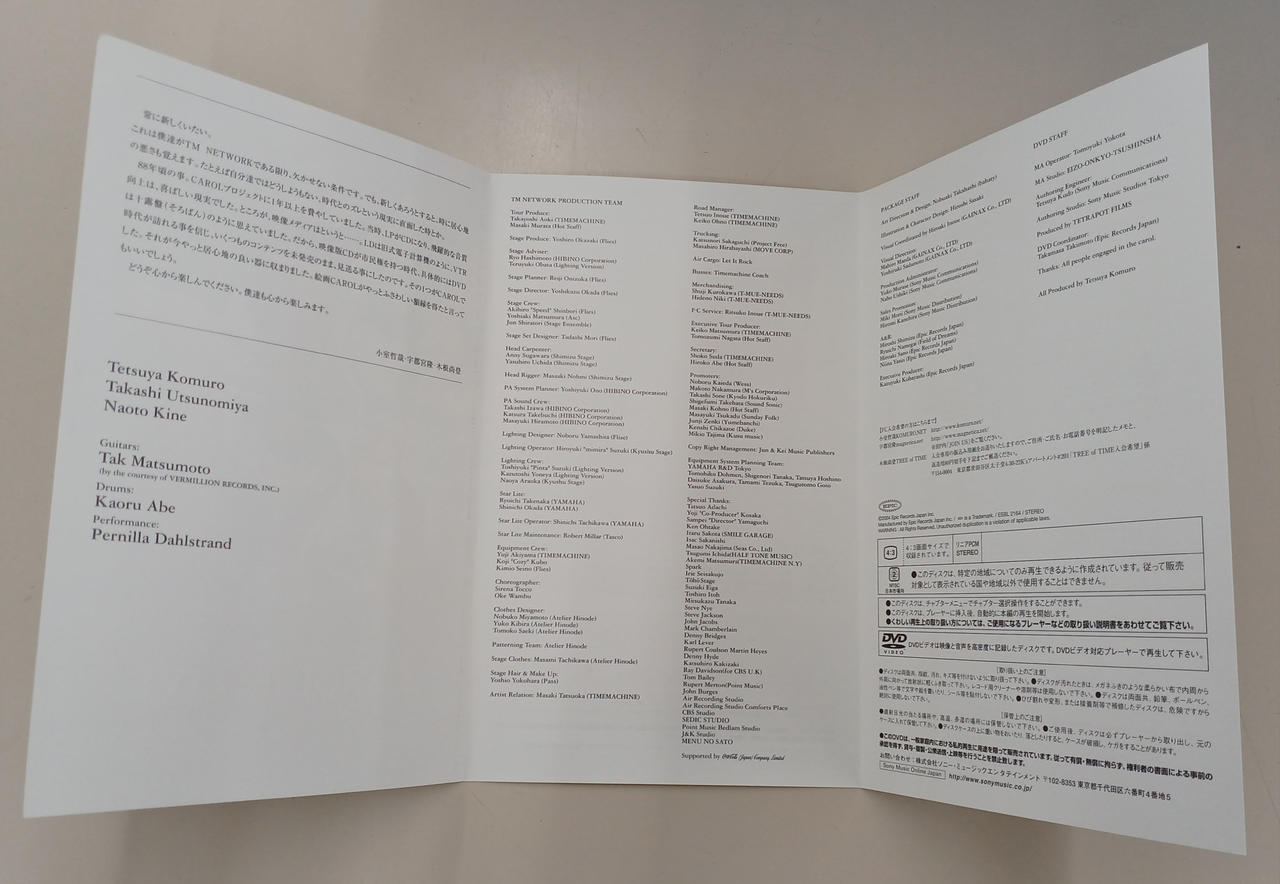 常に新しくいたい。
これは僕達がTM NETWORKである限り、欠かせない条件です。でも、新しくあろうとすると、時に居心地
の悪さも覚えます。たとえば自分達ではどうしようもない、時代とのズレという現実に直面した時とか。
88年頃の事。CAROLプロジェクトに1年以上を費やしていました。当時、LPがCDになり、飛躍的な音質
向上は、喜ばしい現実でした。ところが、映像メディアはというと……。LDは旧式電子計算機のように、VTR
は十露盤(そろばん)のように思えていました。だから、映像版CDが市民権を持つ時代、具体的にはDVD
時代が訪れる事を信じ、いくつものコンテンツを未発売のまま、見送る事にしたのです。その1つがCAROLで
した。それが今やっと居心地の良い器に収まりました。絵画CAROLがやっとふさわしい額縁を得たと言って
もいいでしょう。
どうぞ心から楽しんでください。僕達も心から楽しみます。
小室哲哉・宇都宮隆・木根尚登
Tetsuya Komuro
Takashi Utsunomiya
Naoto Kine
Guitars:
Tak Matsumoto
(by the courtesy of VERMILLION RECORDS, INC.)
Drums:
Kaoru Abe
Performance:
Pernilla Dahlstrand
TM NETWORK PRODUCTION TEAM
Tour Produce:
Takayoshi Aoki (TIMEMACHINE)
Masaru Murata (Hot Staff)
Stage Produce: Yoshiro Okazaki (Flies)
Stage Adviser:
Ryo Hashimoto (HIBINO Corporation)
Teruyuki Obuta (Lighting Version)
Stage Planner: Reiji Ozizuka (Flies)
Stage Director: Yoshikazu Okada (Flies)
Stage Crew:
Akihiro "Speed" Shinbori (Flies)
Yoshiaki Matsumura (Asc)
Jun Shiratori (Stage Ensemble)
Stage Set Designer: Tadashi Mori (Flies)
Head Carpenter:
Anny Sugawara (Shimizu Stage)
Yasuhiro Uchida (Shimizu Stage)
Head Rigger: Masaaki Nohmi (Shimizu Stage)
PA System Planner: Yoshiyuki Ono (HIBINO Corporation)
PA Sound Crew:
Takashi Izawa (HIBINO Corporation)
Katsura Takebuchi (HIBINO Corporation)
Masayuki Hiramoto (HIBINO Corporation)
Lighting Designer: Noboru Yamashita (Flies)
Lighting Operator: Hiroyuki "mimira" Suzuki (Kyushu Stage)
Lighting Crew:
Toshiyuki "Pinta" Suzuki (Lighting Version)
Kazutoshi Yoneya (Lighting Version)
Naoya Araoka (Kyushu Stage)
Star Lite:
Ryuichi Takenaka (YAMAHA)
Shinichi Okada (YAMAHA)
Star Lite Operator: Shinichi Tachikawa (YAMAHA)
Star Lite Maintenance: Robert Millar (Tasco)
Equipment Crew:
Yuji Akiyama (TIMEMACHINE)
Koji "Cozy" Kubo
Kimio Seino (Flies)
Choreographer:
Sirena Tocco
Oke Wambu
Clothes Designer:
Nobuko Miyamoto (Atelier Hinode)
Yuko Kibira (Atelier Hinode)
Tomoko Saeki (Atelier Hinode)
Patterning Team: Atelier Hinode
Stage Clothes: Masami Tachikawa (Atelier Hinode)
Stage Hair & Make Up:
Yoshio Yokohara (Pass)
Artist Relation: Masaki Tatsuoka (TIMEMACHINE)
Road Manager:
Tetsuo Inoue (TIMEMACHINE)
Keiko Ohno (TIMEMACHINE)
Trucking:
Katsunori Sakaguchi (Project Free)
Masahiro Hirabayashi (MOVE CORP)
Air Cargo: Let It Rock
Busses: Timemachine Coach
Merchandising:
Shuji Kurokawa (T-MUE-NEEDS)
Hideno Niki (T-MUE-NEEDS)
F·C Service: Ratsuko Inoue (T-MUE-NEEDS)
Executive Tour Producer:
Keiko Matsumura (TIMEMACHINE)
Tomozumi Nagata (Hot Staff)
Secretary:
Shoko Suda (TIMEMACHINE)
Hiroko Abe (Hot Staff)
Promoters:
Noboru Kaieda (Wess)
Makoto Nakamura (M's Corporation)
Takashi Sone (Kyodo Hokuriku)
Shigefumi Takebata (Sound Sonic)
Masaki Kohno (Hot Staff)
Masayasu Tsukada (Sunday Folk)
Junji Zenki (Yumebanchi)
Kenshi Chikazoe (Duke)
Mikio Tajima (Kusu music)
Copy Right Management: Jun & Kei Music Publishers
Equipment System Planning Team:
YAMAHA R&D Tokyo
Tomohiko Dohmen, Shigenori Tanaka, Tamuya Hoshino
Daisuke Asakura, Tamami Tezuka, Tsugutomo Goto
Yasuo Suzuki
Special Thanks:
Tatsuo Adachi
Yoji "Co-Producer" Kosaka
Sampei "Director" Yamaguchi
Ken Ohtake
Itaru Sakota (SMILE GARAGE)
Isac Sakanishi
Masao Nakajima (Seas Co., Ltd)
Tsugumi Ichida(HALF TONE MUSIC)
Akemi Matsumura(TIMEMACHINE N.Y)
Spark
Irie Seisakujo
Tôhô Stage
Suzuki Eiga
Toshiro Itoh
Mitsukazu Tanaka
Steve Nye
Steve Jackson
John Jacobs
Mark Chamberlain
Denny Bridges
Karl Lever
Rupert Coulson Martin Heyes
Denny Hyde
Katsuhiro Kakizaki
Ray Davidson(for CBS U.K)
Tom Bailey
Rupert Merton(Point Music)
John Burges
Air Recording Studio
Air Recording Studio Comforts Place
CBS Studio
SEDIC STUDIO
Point Music Bedlam Studio
J&K Studio
MENU NO SATO
Supported by Coca-Cola (Japan) Company, Limited
PACKAGE STAFF
Art Direction & Design: Nobuaki Takahashi (habaty)
Illustration & Character Design: Hiroshi Sasaki
Visual Coordinated by Hiroki Inoue (GAINAX Co., LTD)
Visual Direction:
Mahiro Maeda (GAINAX Co., LTD)
Yoshiyuki Sadamoto (GAINAX Co., LTD)
Production Administrator:
Yuko Murase (Sony Music Communications)
Naho Uehiki (Sony Music Communications)
Sales Promotion:
Miki Mori (Sony Music Distribution)
Hiromi Kanehira (Sony Music Distribution)
A&R:
Hiroshi Shimizu (Epic Records Japan)
Ryuichi Namegai (Field of Dreams)
Hiroaki Sano (Epic Records Japan)
Niina Yasui (Epic Records Japan)
Executive Producer:
Kazuyuki Kobayashi (Epic Records Japan)
DVD STAFF
MA Operator: Tomoyuki Yokota
MA Studio: EIZO-ONKYO-TSUSHINSHA
Authoring Engineer:
Tetsuya Kudo (Sony Music Communications)
Authoring Studio: Sony Music Studios Tokyo
Produced by TETRAPOT FILMS
DVD Coordinator:
Takamasa Takamoto (Epic Records Japan)
Thanks: All people engaged in the carol.
All Produced by Tetsuya Komuro
【F.C.入会希望の方はこちらまで】
小室哲哉KOMURO.NET http://www.komuro.net/
宇都宮隆magnetica.net http://www.magnetica.net/
木根尚登TREE of TIME
EPIC
©2004 Epic Records Japan Inc.
Manufactured by Epic Records Japan Inc. / is a Trademark. / ESBL 2164 / STEREO
WARNING: All Rights Reserved. Unauthorized duplication is a violation of applicable laws.
4:3 4:3画面サイズで収録されています。 リニアPCM STEREO
2 NTSC 日本市場向
●このディスクは、特定の地域についてのみ再生できるように作成されています。従って販売
対象として表示されている国や地域以外で使用することはできません。
●このディスクは、チャプターメニューでチャプター選択操作をすることができます。
●このディスクは、プレーヤーに挿入後、自動的に本編の再生を開始します。
●くわしい再生上の取り扱い方については、ご使用になるプレーヤーなどの取り扱い説明書をあわせてご覧下さい。
DVD VIDEO DVDビデオは映像と音声を高密度に記録したディスクです。DVDビデオ対応プレーヤーで再生して下さい。
[取り扱い上のご注意]
●ディスクは両面共、指紋、汚れ、キズ等を付けないように取り扱って下さい。●ディスクが汚れたときは、メガネふきのような柔らかい布で内周から
外周に向かって放射状に軽くふき取って下さい。レコード用クリーナーや溶剤等は使用しないで下さい。●ディスクは両面共、鉛筆、ボールペン、
油性ペン等で文字や絵を書いたり、シール等を貼付しないで下さい。●ひび割れや変形、または接着剤等で補修したディスクは、危険ですから
絶対に使用しないで下さい。
[保管上のご注意]
●直射日光の当たる場所や、高温、多湿の場所には保管しないで下さい。●ご使用後、ディスクは必ずプレーヤーから取り出し、元の
ケースに入れて保管して下さい。●ディスクケースの上に重い物をおいたり、落としたりすると、ケースが破損し、ケガをすることがあります。
●このDVDは、一般家庭内における私的再生に用途を限って販売されています。従って有償・無償に拘らず、権利者の書面による事前の
承諾を得ず、貸与・複製・公衆送信・上映等を行うことを禁止致します。
お問い合わせ:株式会社ソニー・ミュージックエンタテインメント 〒102-8353 東京都千代田区六番町4番地5
Sony Music Online Japan http://www.sonymusic.co.jp/